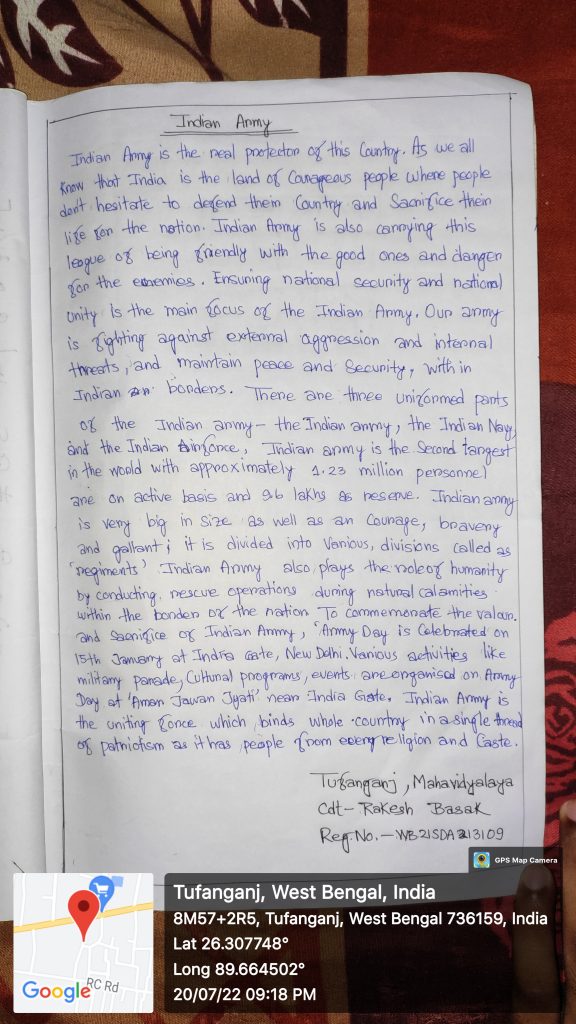 Indian Army
Indian Army is the real protector of this Country. As we all
know that India is the land of Courageous people where people
don't hesitate to defend their Country and Sacrifice their
life for the nation. Indian Army is also carrying this
league of being friendly with the good ones and danger
for the enemies. Ensuring national security and national
unity is the main focus of the Indian Army. Our army
is fighting against external aggression and internal
threats, and maintain peace and Security, with in
Indian borders. There are three uniformed parts
of the Indian army - the Indian army, the Indian Navy,
and the Indian Airforce, Indian army is the Second largest
in the world with approximately 1.23 million personnel
are on active basis and 9.6 lakhs as reserve. Indian army
is very big in size as well as an Courage, bravery
and gallant; it is divided into various, divisions called as
'regiments'. Indian Army also plays the role of humanity
by conducting rescue operations during natural calamities
within the border of the nation To commemorate the valour.
and Sacrifice of Indian Army, 'Army Day is Celebrated on
15th January at India Gate, New Delhi. Various activities like
military parade, Cultural programs, events are organised on Army
Day at 'Amar Jawan Jyati' near India Gate. Indian Army is
the uniting force which binds whole country in a single thread
of patriotism as it has people from every religion and Caste.
Tufanganj, Mahavidyalaya
Cdt- Rakesh Basak
Reg. No. - WB21SDA213109
GPS Map Camera
Tufanganj, West Bengal, India
8M57+2R5, Tufanganj, West Bengal 736159, India
Lat 26.307748°
Long 89.664502°
20/07/22 09:18 PM
RC Rd
Google